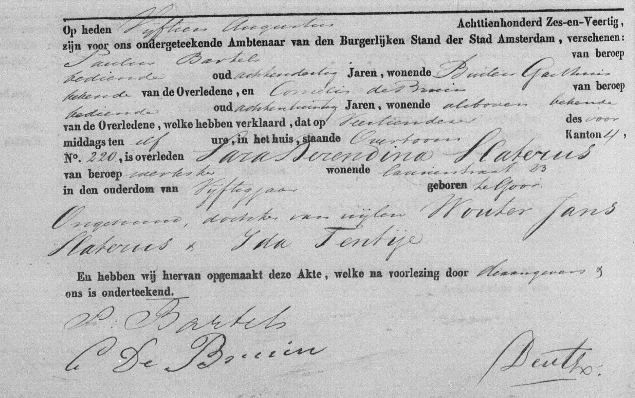 Op heden Vijftien Augustus Achttienhonderd Zes-en-Veertig,
zijn voor ons ondergeteekende Ambtenaar van den Burgerlijken Stand der Stad Amsterdam, verschenen:
Paulus Bartels van beroep
bediende oud achtendertig Jaren, wonende Buiten Gasthuis
bekende van de Overledene, en Cornelis de Bruin van beroep
bediende oud Jaren, wonende alsboven bekende
van de Overledene, welke hebben verklaard, dat op Dertiender des voor
middags ten elf ure, in het huis, staande Overtoom Kanton 4,
No. 220, is overleden Sara Berendina Slaterus
van beroep werkster wonende 83
in den ouderdom van Vijftig jaar geboren te Goor
Ongehuwd, dochter van wijlen Wouter Jans
Slaterus & Ida Tentije
En hebben wij hiervan opgemaakt deze Akte, welke na voorlezing door de aangevers &
ons is onderteekend.
P. Bartels
C De Bruin